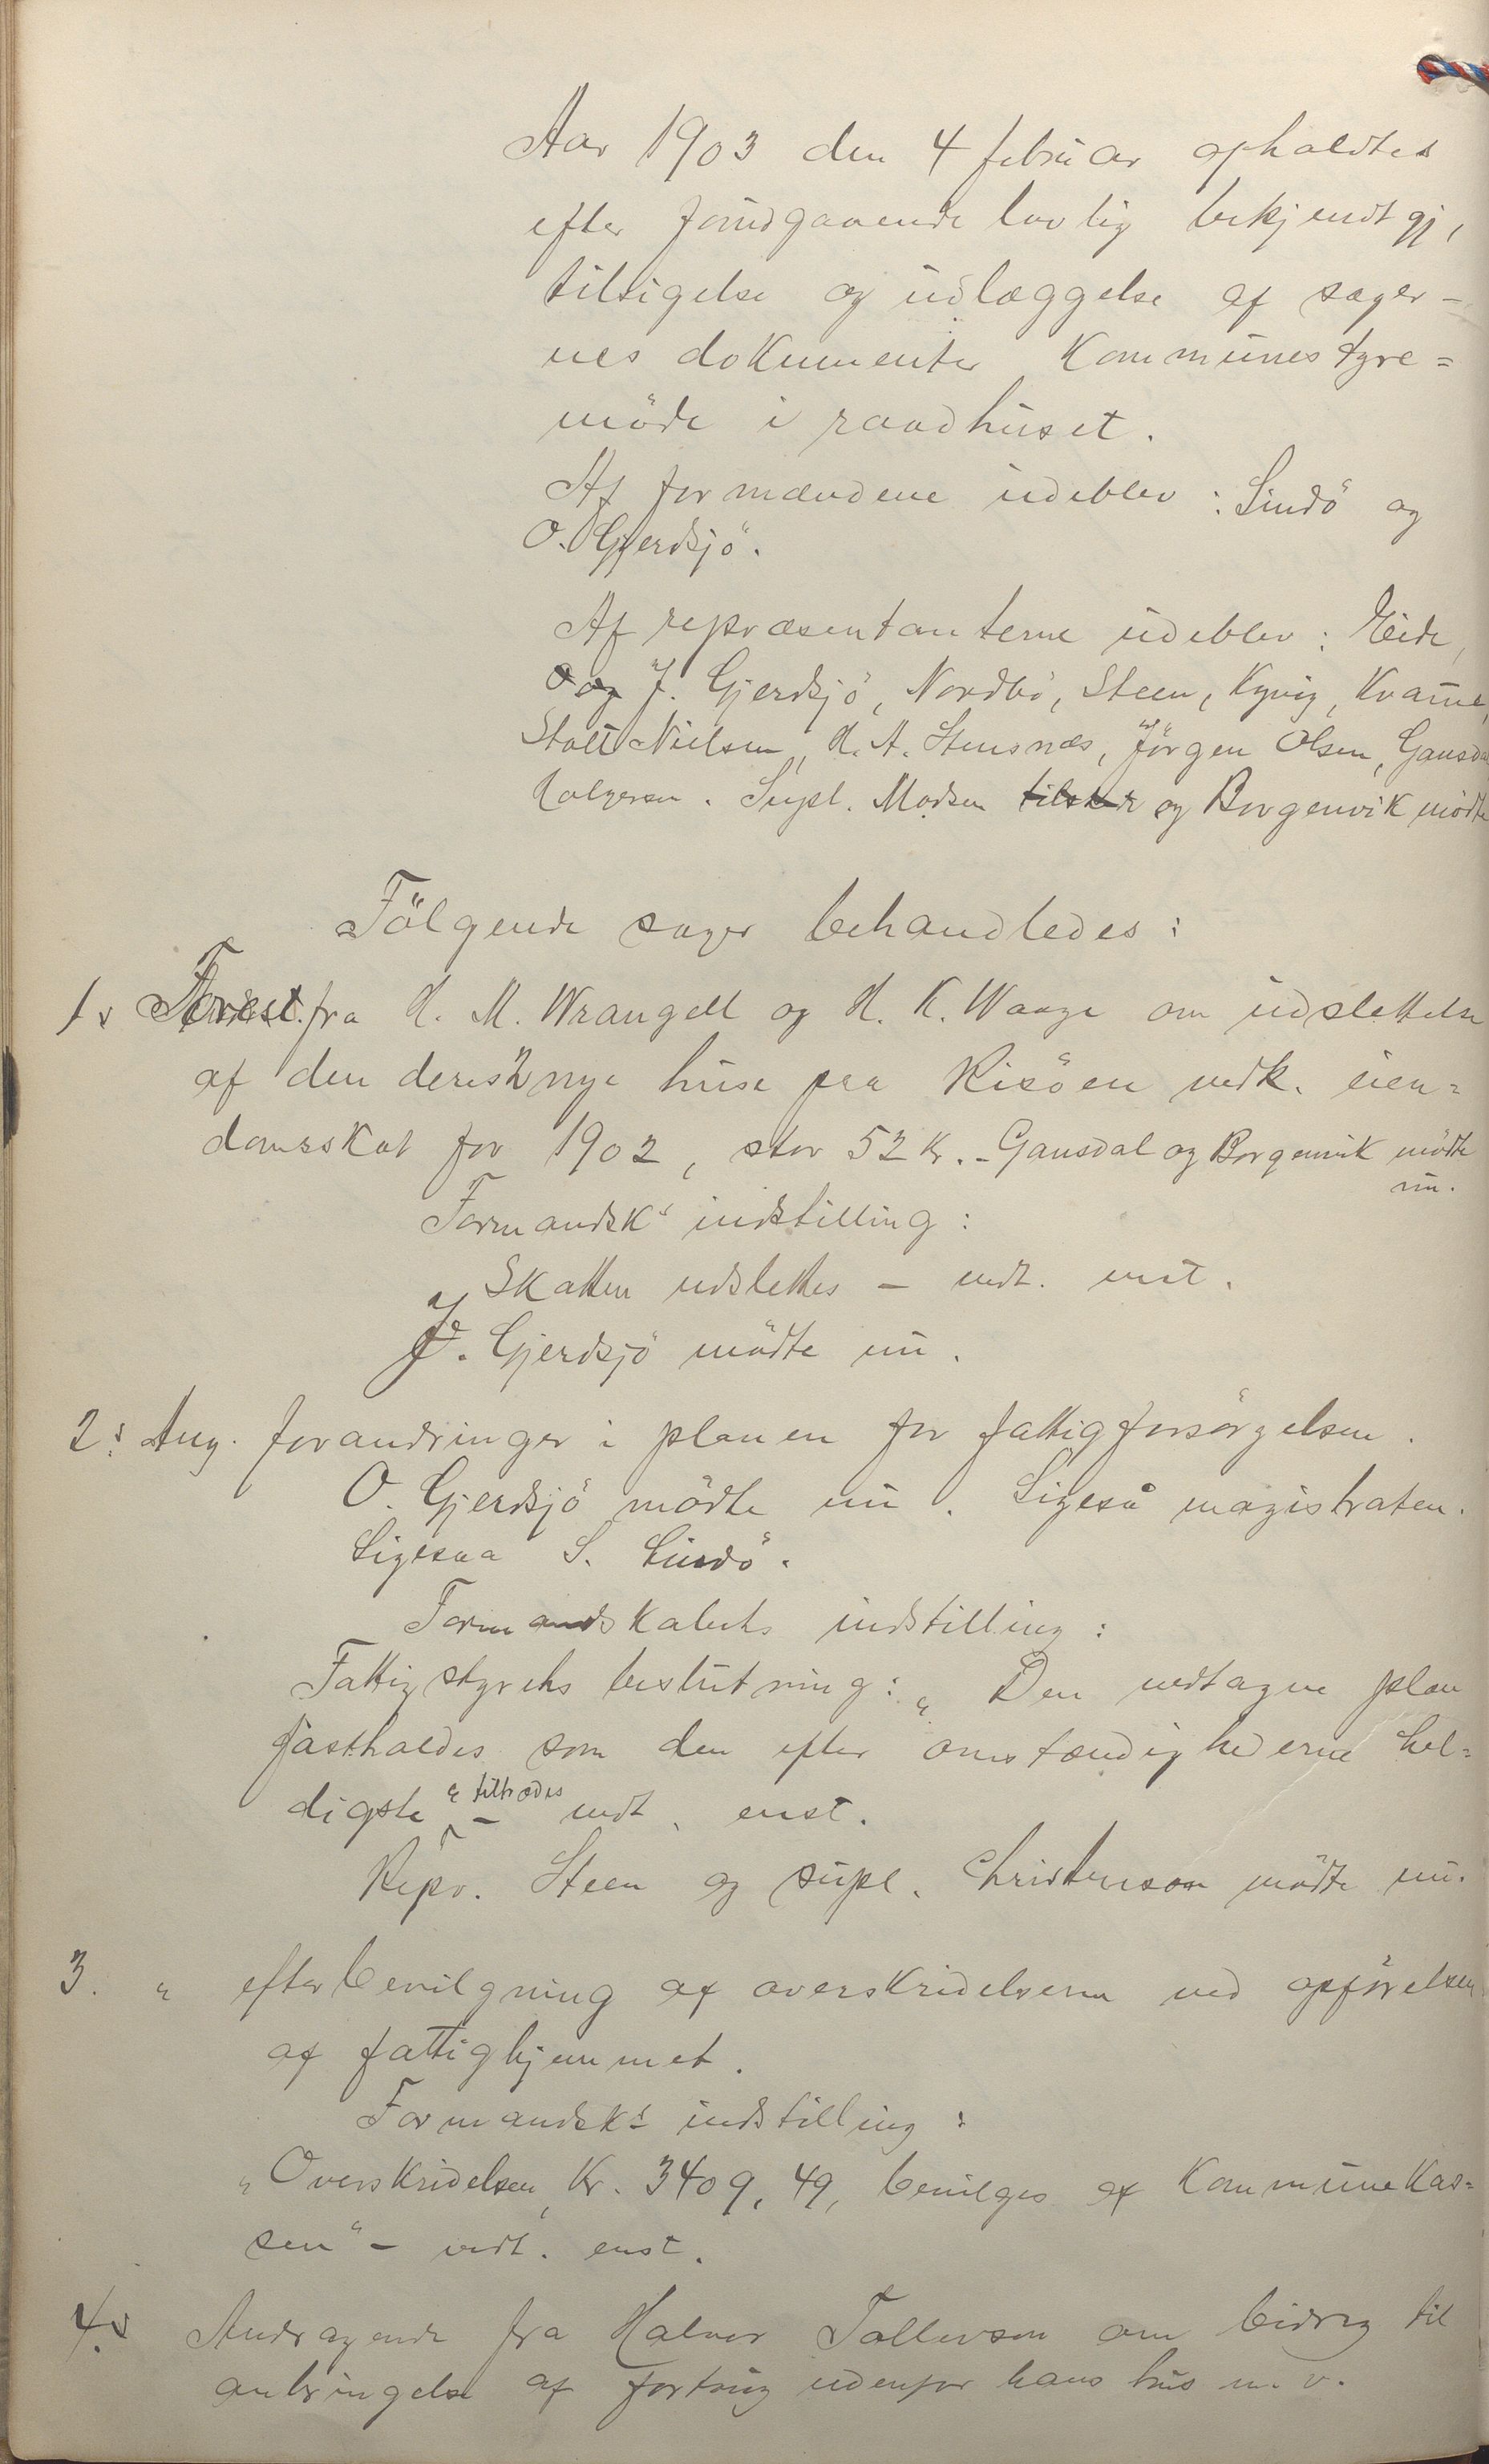 Aar 1903 den 4 februar opholdtes
efter forudgaaende lovlig bekjendtgj,
tilsigelse og udlæggelse af sager-
nes dokumenter Kommunestyre=
möde i raadhuset.
Af formændene udeblev: Sundö og
O. Gjerdsjö.
Af repræsentanterne udeblev: Eide,
J. Gjerdsjö, Nordbö, Steen, Kyvig, Kvamme,
Stolt Nielsen, H. A. Stensnæs, Jörgen Olsen, Gausdal
Holgersen. Supl. Madsen og Borgenvik mödte
Fölgende sager behandledes:
1. Forest. fra H. M. Wrangell og H. K. Waage om udslettelse
af den deres 2 nye huse paa Risöen vedk. eien=
domsskat for 1902, stor 52 Kr. - Gausdal og Borgenvik mödte
nu.
Formandsks indstilling:
Skatten udslettes - vedt. enst.
J. Gjerdsjö mödte nu.
2. Ang. forandringer i planen for fattigforsörgelsen.
O. Gjerdsjö mödte nu. Ligeså magistraten.
Ligesaa S. Sundö.
Formandskabets indstilling:
Fattigstyrets beslutning: "Den vedtagne plan
fastholdes som den efter omstændighederne hel=
digste" tiltrædes - vedt. enst.
Repr. Steen og supl. Christenson mödte nu.
3. " efterbevilgning af overskridelserne ved opförelsen
af fattighjemmet.
Formandsks indstilling:
"Overskridelsen, Kr. 3409,49, bevilges af Kommunekas=
sen" - vedt. enst.
4. Andragende fra Halvor Tollevsen om bidrag til
anbringelse af fortoug udenfor hans hus m. v.